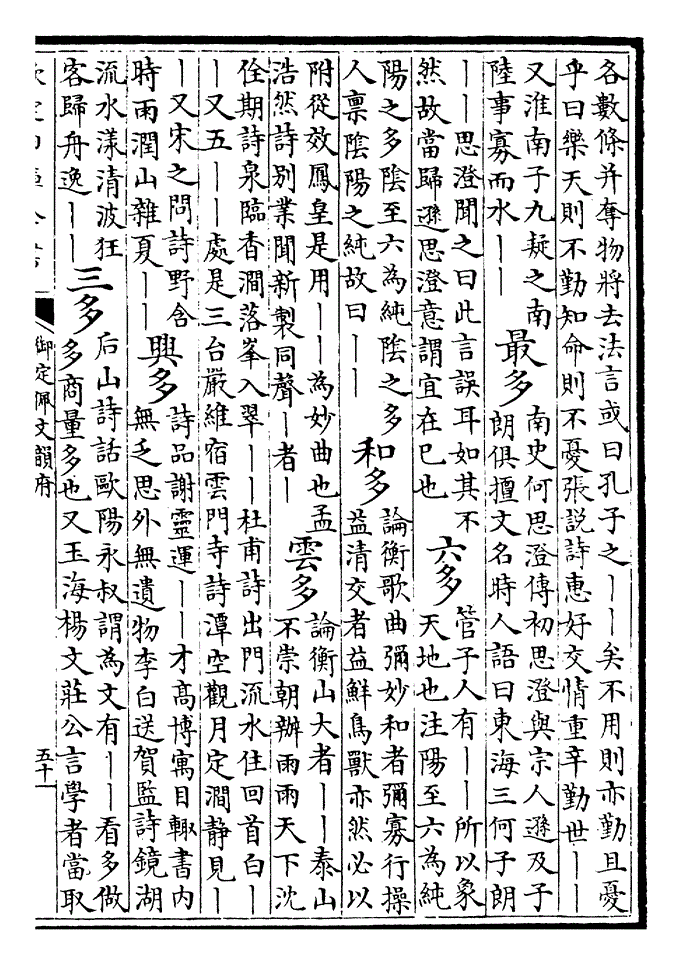 各數條并奪物將去法言或曰孔子之丨丨矣不用則亦勤且憂
乎曰樂天則不勤知命則不憂張説詩惠好交情重辛勤世丨丨
又淮南子九疑之南
陸事寡而水丨丨
最多
南史何思澄傳初思澄與宗人遜及子
朗俱擅文名時人語曰東海三何子朗
丨丨思澄聞之曰此言誤耳如其不
然故當歸遜思澄意謂宜在巳也
六多
管子人有丨丨所以象
天地也注陽至六為純
陽之多陰至六為純陰之多
人禀陰陽之純故曰丨丨
和多
論衡歌曲彌妙和者彌寡行操
益清交者益鮮鳥獸亦然必以
附從效鳳皇是用丨丨為妙曲也孟
浩然詩别業聞新製同聲丨者丨
雲多
論衡山大者丨丨泰山
不崇朝辦雨雨天下沈
佺期詩泉臨香澗落峯入翠丨丨杜甫詩出門流水住回首白丨
丨又五丨丨處是三台嚴維宿雲門寺詩潭空觀月定澗静見丨
丨又宋之問詩野含
時雨潤山雜夏丨丨
興多
詩品謝靈運丨丨才高博寓目輙書内
無乏思外無遺物李白送賀監詩鏡湖
流水漾清波狂
客歸舟逸丨丨
三多
后山詩話歐陽永叔謂為文有丨丨看多做
多商量多也又玉海楊文莊公言學者當取
御定佩文韻府
五十一